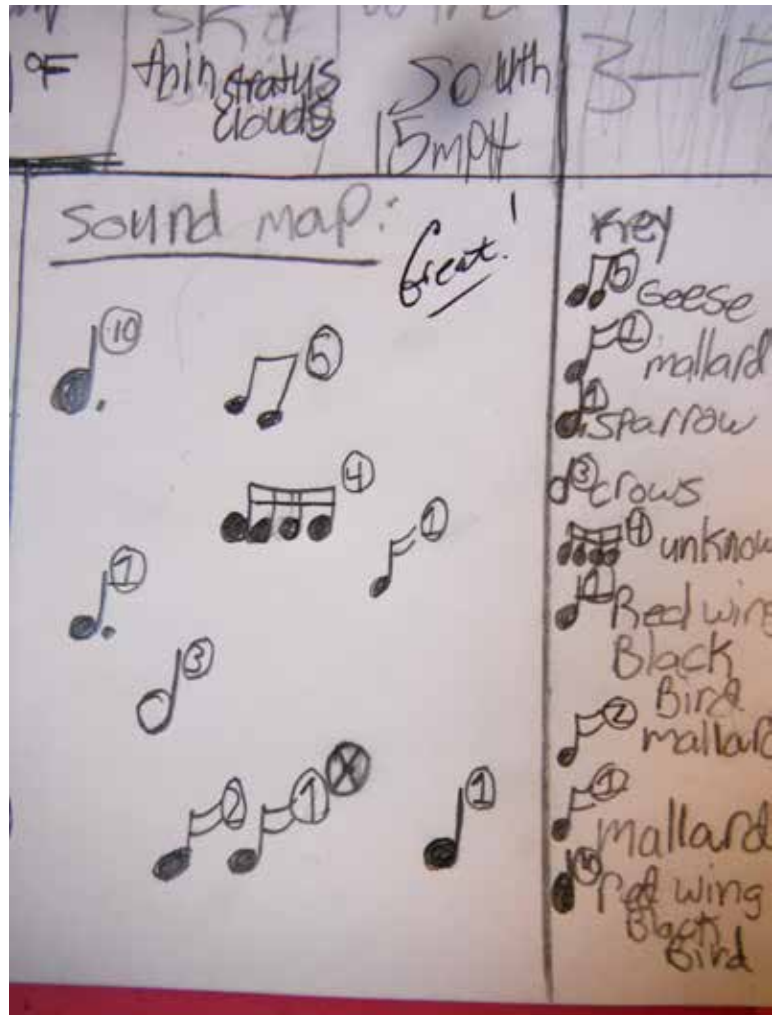 °F
Sky
thin stratus
clouds
South
15mpH
3-12
Sound map:
Great!
10
5
4
1
1
3
2
1
1
Key
5 Geese
1 mallard
1 sparrow
3 crows
4 unknow
1 Red wing
Black
Bird
2 mallard
1 mallard
Red wing
Black
Bird